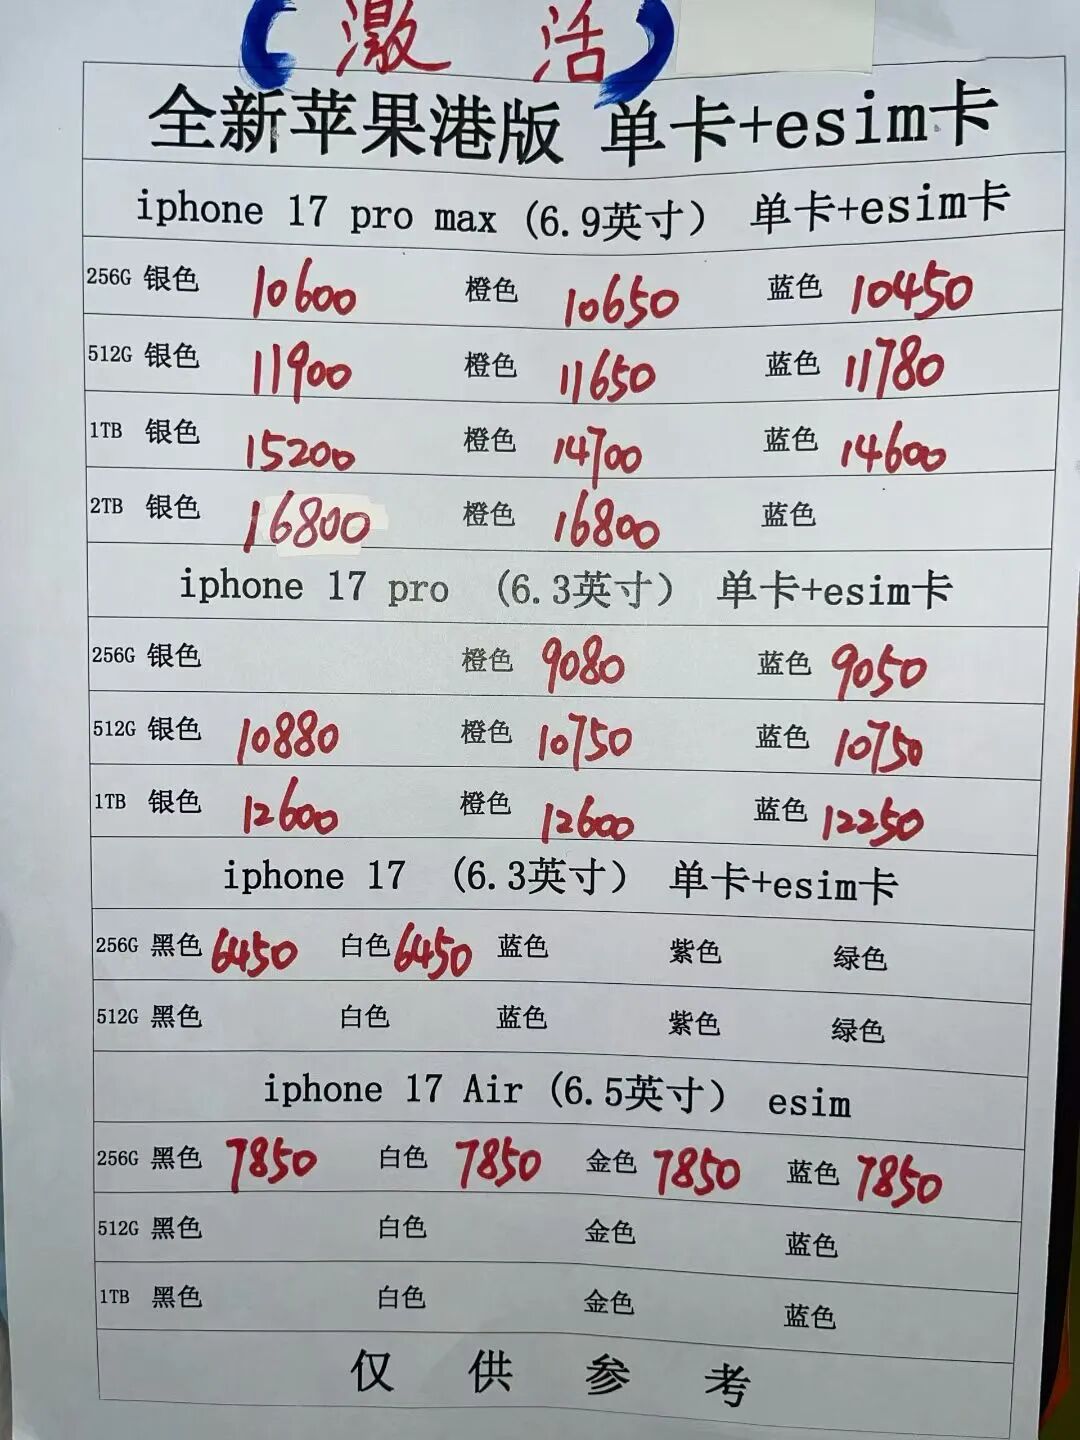 （激 活）
全新苹果港版 单卡+esim卡
iphone 17 pro max（6.9英寸） 单卡+esim卡
256G 银色 10600 橙色 10650 蓝色 10450
512G 银色 11900 橙色 11650 蓝色 11780
1TB 银色 15200 橙色 14700 蓝色 14600
2TB 银色 16800 橙色 16800 蓝色
iphone 17 pro （6.3英寸） 单卡+esim卡
256G 银色 橙色 9080 蓝色 9050
512G 银色 10880 橙色 10750 蓝色 10750
1TB 银色 12600 橙色 12600 蓝色 12250
iphone 17 （6.3英寸） 单卡+esim卡
256G 黑色 6450 白色 6450 蓝色 紫色 绿色
512G 黑色 白色 蓝色 紫色 绿色
iphone 17 Air（6.5英寸） esim
256G 黑色 7850 白色 7850 金色 7850 蓝色 7850
512G 黑色 白色 金色 蓝色
1TB 黑色 白色 金色 蓝色
仅 供 参 考